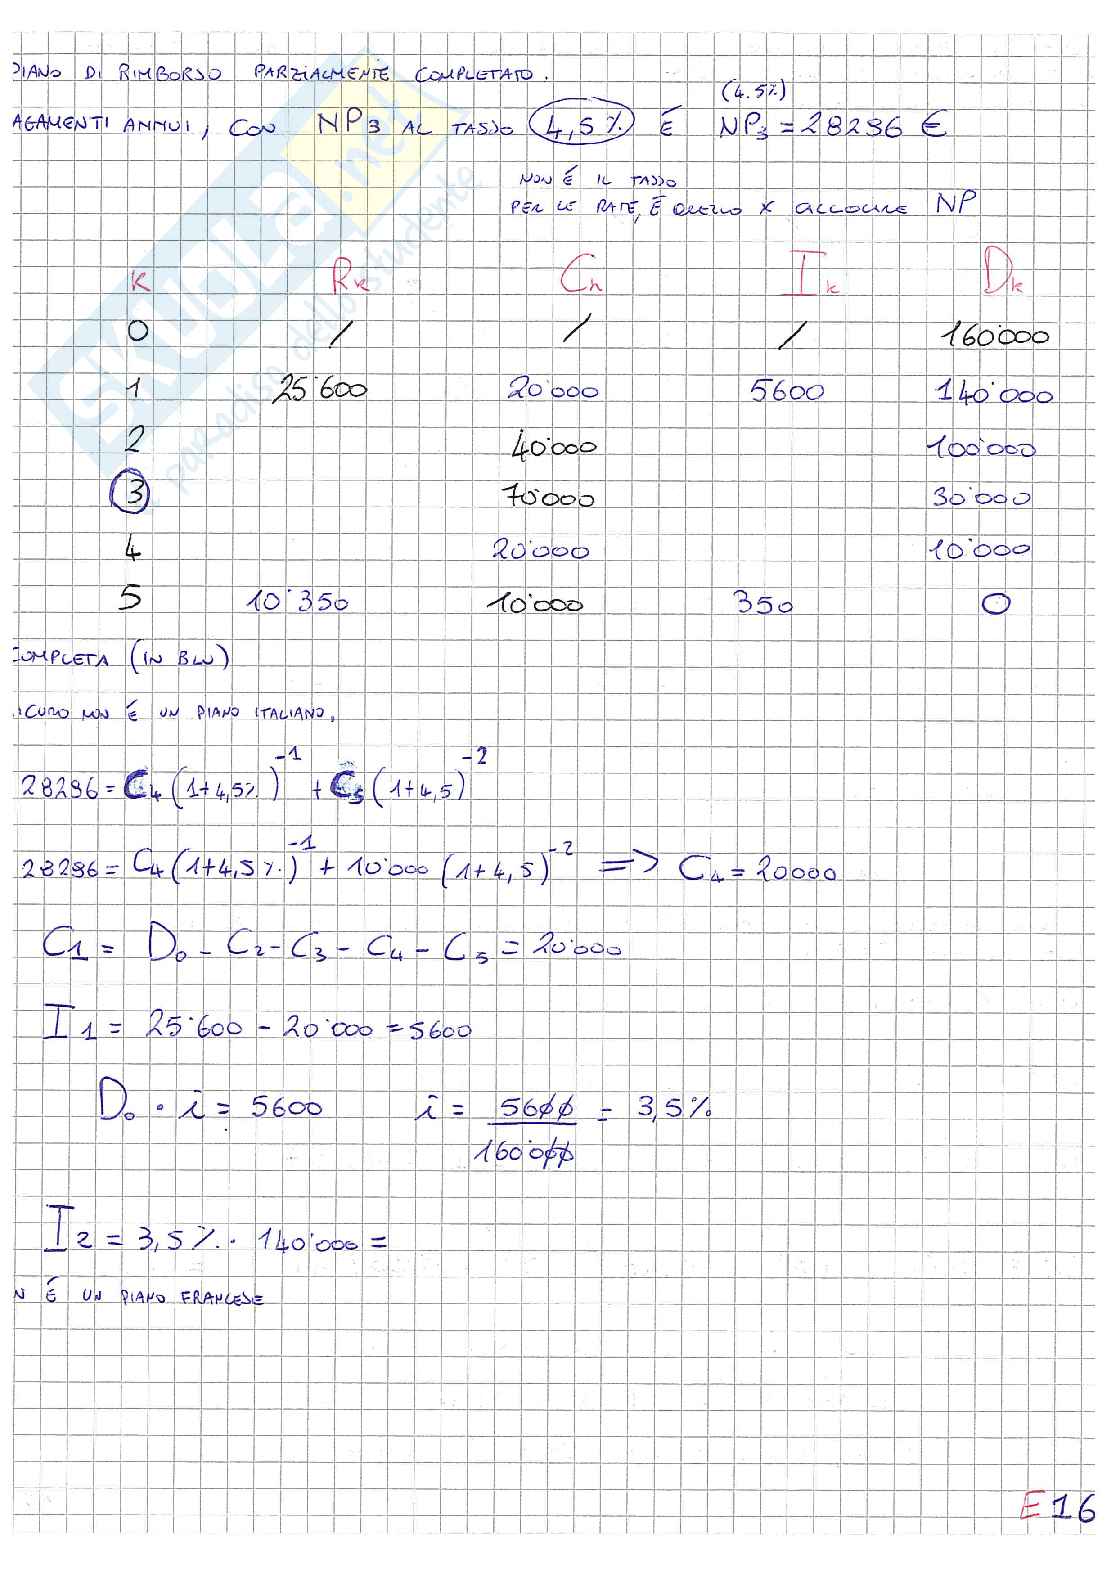 PIANO DI RIMBORSO PARZIALMENTE COMPLETATO.
(4.5%)
AGAMENTI ANNUI, CON NP3 AL TASSO 4,5% É NP3 = 28296 €
NON É IL TASSO
PER LE RATE, É QUELLO X CALCOLARE NP
K Rk Ck Ik Dk
0 / / / 160'000
1 25'600 20'000 5600 140'000
2 40'000 100'000
3 70'000 30'000
4 20'000 10'000
5 10'350 10'000 350 0
COMPLETA (IN BLU)
ICURO NON É UN PIANO ITALIANO.
28296 = C4 (1+4,5%)^-1 + C5 (1+4,5)^-2
28296 = C4 (1+4,5%)^-1 + 10'000 (1+4,5)^-2 => C4 = 20000
C1 = D0 - C2 - C3 - C4 - C5 = 20'000
I1 = 25'600 - 20'000 = 5600
D0 · i = 5600 i = 5600 / 160'000 = 3,5%
I2 = 3,5% · 140'000 =
N É UN PIANO FRANCESE
E16
SKUOLA.net
paradiso dello studente